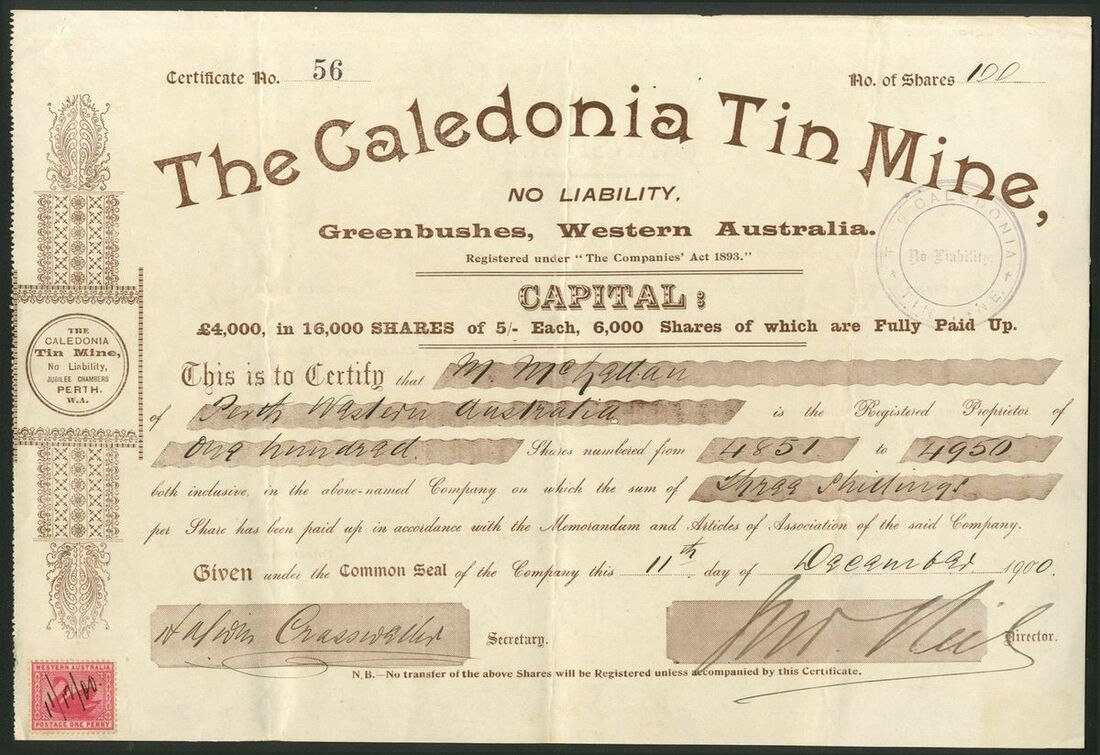 Certificate No. 56
No. of Shares 100
The Caledonia Tin Mine,
NO LIABILITY,
Greenbushes, Western Australia.
Registered under "The Companies' Act 1893."
CAPITAL:
£4,000, in 16,000 SHARES of 5/- Each, 6,000 Shares of which are Fully Paid Up.
This is to Certify that M. McHattan
of Perth Western Australia is the Registered Proprietor of
One hundred Shares numbered from 4851 to 4950
both inclusive, in the above-named Company on which the sum of Three Shillings
per Share has been paid up in accordance with the Memorandum and Articles of Association of the said Company.
Given under the Common Seal of the Company this 11th day of December 1900.
Secretary.
Director.
N.B.—No transfer of the above Shares will be Registered unless accompanied by this Certificate.
THE
CALEDONIA
Tin Mine,
No Liability,
JUBILEE CHAMBERS
PERTH.
W.A.
THE CALEDONIA
No Liability.
TIN MINE
WESTERN AUSTRALIA
11/12/00.
POSTAGE ONE PENNY